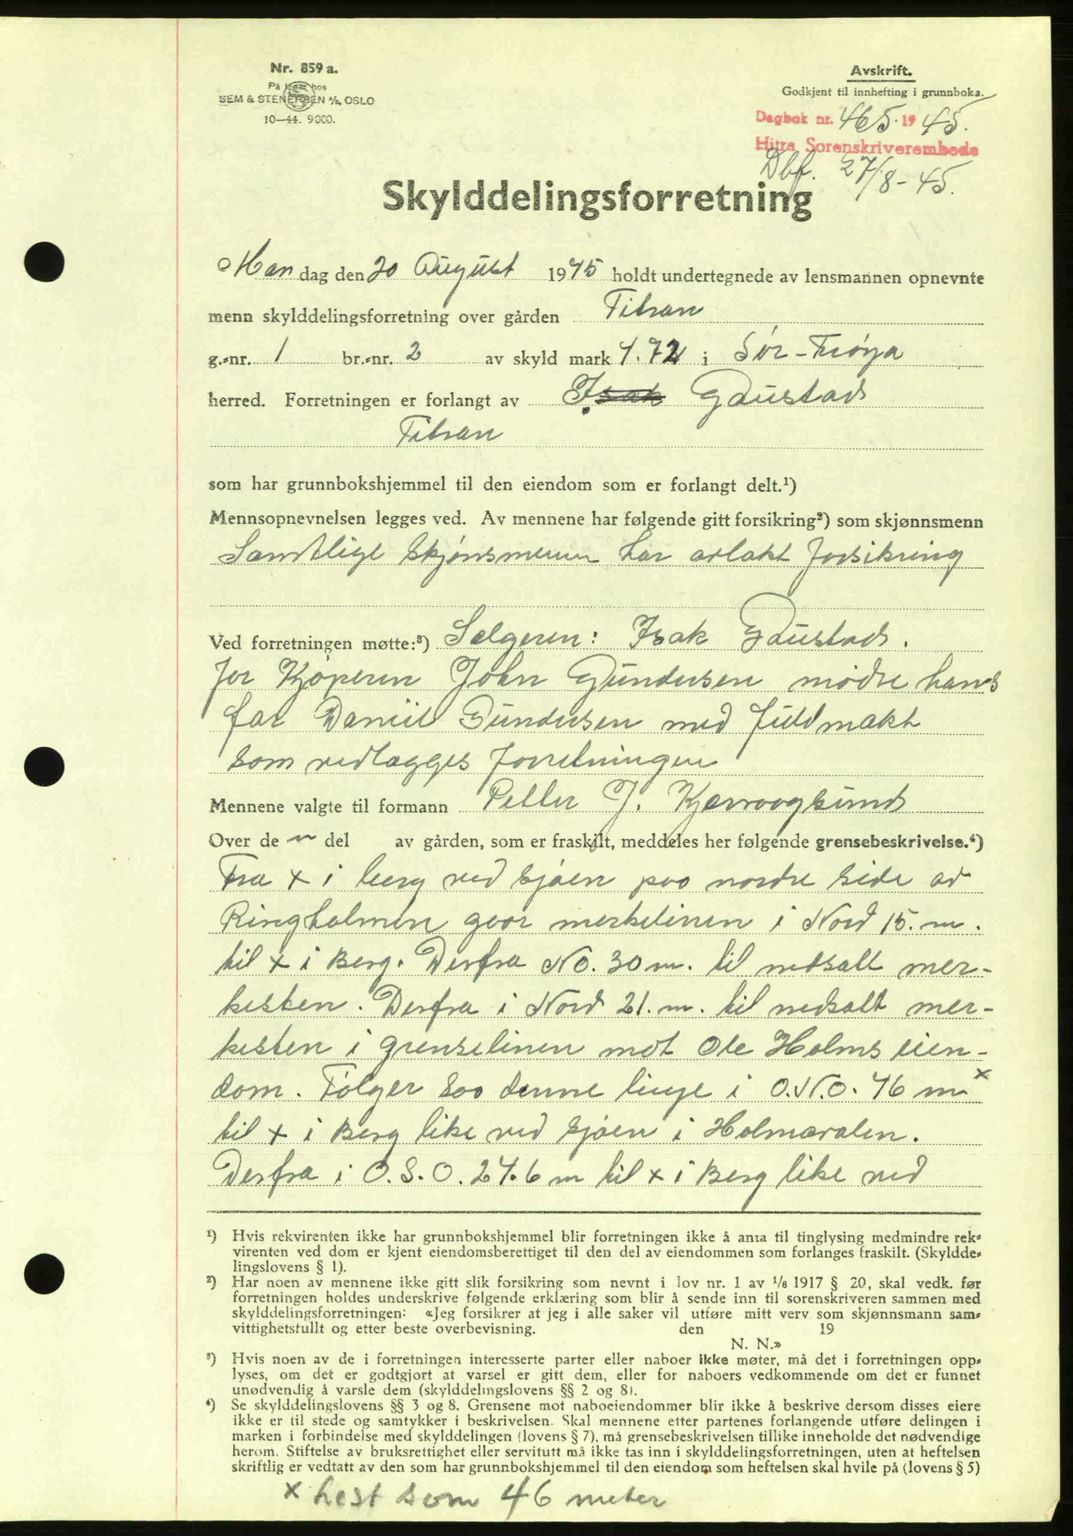 Nr. 859 a.
På lager hos
SEM & STENERSEN A/S, OSLO
10—44. 9000.
Avskrift.
Godkjent til innhefting i grunnboka.
Dagbok nr. 465. 1945.
Hitra Sorenskriverembede
Dbf. 27/8-45.
Skylddelingsforretning
Mandag den 20 August 1945 holdt undertegnede av lensmannen opnevnte
menn skylddelingsforretning over gården Titran
g.-nr. 1 br.-nr. 2 av skyld mark 4.72 i Sör-Fröya
herred. Forretningen er forlangt av Isak Gaustad
Titran
som har grunnbokshjemmel til den eiendom som er forlangt delt.¹)
Mennsopnevnelsen legges ved. Av mennene har følgende gitt forsikring²) som skjønnsmenn
Samtlige skjönsmenn har avlakt forsikring
Ved forretningen møtte:³) Selgeren: Isak Gaustad.
for Kjöperen John Gundersen mödte hans
far Daniel Gundersen med fuldmakt
som vedlægges forretningen
Mennene valgte til formann Petter J. Kjervaagsund
Over de n del av gården, som er fraskilt, meddeles her følgende grensebeskrivelse.⁴)
Fra x i berg ved sjöen paa nordre side av
Ringholmen gaar merkelinen i Nord 15. m.
til x i Berg. Derfra NO. 30 m. til nedsatt mer-
kesten. Derfra i Nord 21. m. til nedsatt mer-
kesten i grenselinen mot Ole Holms eien-
dom. Fölger saa denne linje i O.N.O. 76 m x
til x i Berg like ved sjöen i Holmavalen.
Derfra i O.S.O. 24.6 m til x i Berg like ved
¹) Hvis rekvirenten ikke har grunnbokshjemmel blir forretningen ikke å anta til tinglysing medmindre rek-
virenten ved dom er kjent eiendomsberettiget til den del av eiendommen som forlanges fraskilt. (Skyldde-
lingslovens § 1).
²) Har noen av mennene ikke gitt slik forsikring som nevnt i lov nr. 1 av 1/6 1917 § 20, skal vedk. før
forretningen holdes underskrive følgende erklæring som blir å sende inn til sorenskriveren sammen med
skylddelingsforretningen: «Jeg forsikrer at jeg i alle saker vil utføre mitt verv som skjønnsmann sam-
vittighetsfullt og etter beste overbevisning. den 19
N. N.»
³) Hvis noen av de i forretningen interesserte parter eller naboer ikke møter, må det i forretningen opp-
lyses, om det er godtgjort at varsel er gitt dem, eller for naboers vedkommende om det er funnet
unødvendig å varsle dem (skylddelingslovens §§ 2 og 8).
⁴) Se skylddelingslovens §§ 3 og 8. Grensene mot naboeiendommer blir ikke å beskrive dersom disses eiere
ikke er til stede og samtykker i beskrivelsen. Skal mennene etter partenes forlangende utføre delingen i
marken i forbindelse med skylddelingen (lovens § 7), må grensebeskrivelsen tillike inneholde det nødvendige
herom. Stiftelse av bruksrettighet eller servitutt må ikke tas inn i skylddelingsforretningen, uten at heftelsen
skriftlig er vedtatt av den som har grunnbokshjemmel til den eiendom som heftelsen skal hvile på (lovens § 5)
x lest som 46 meter